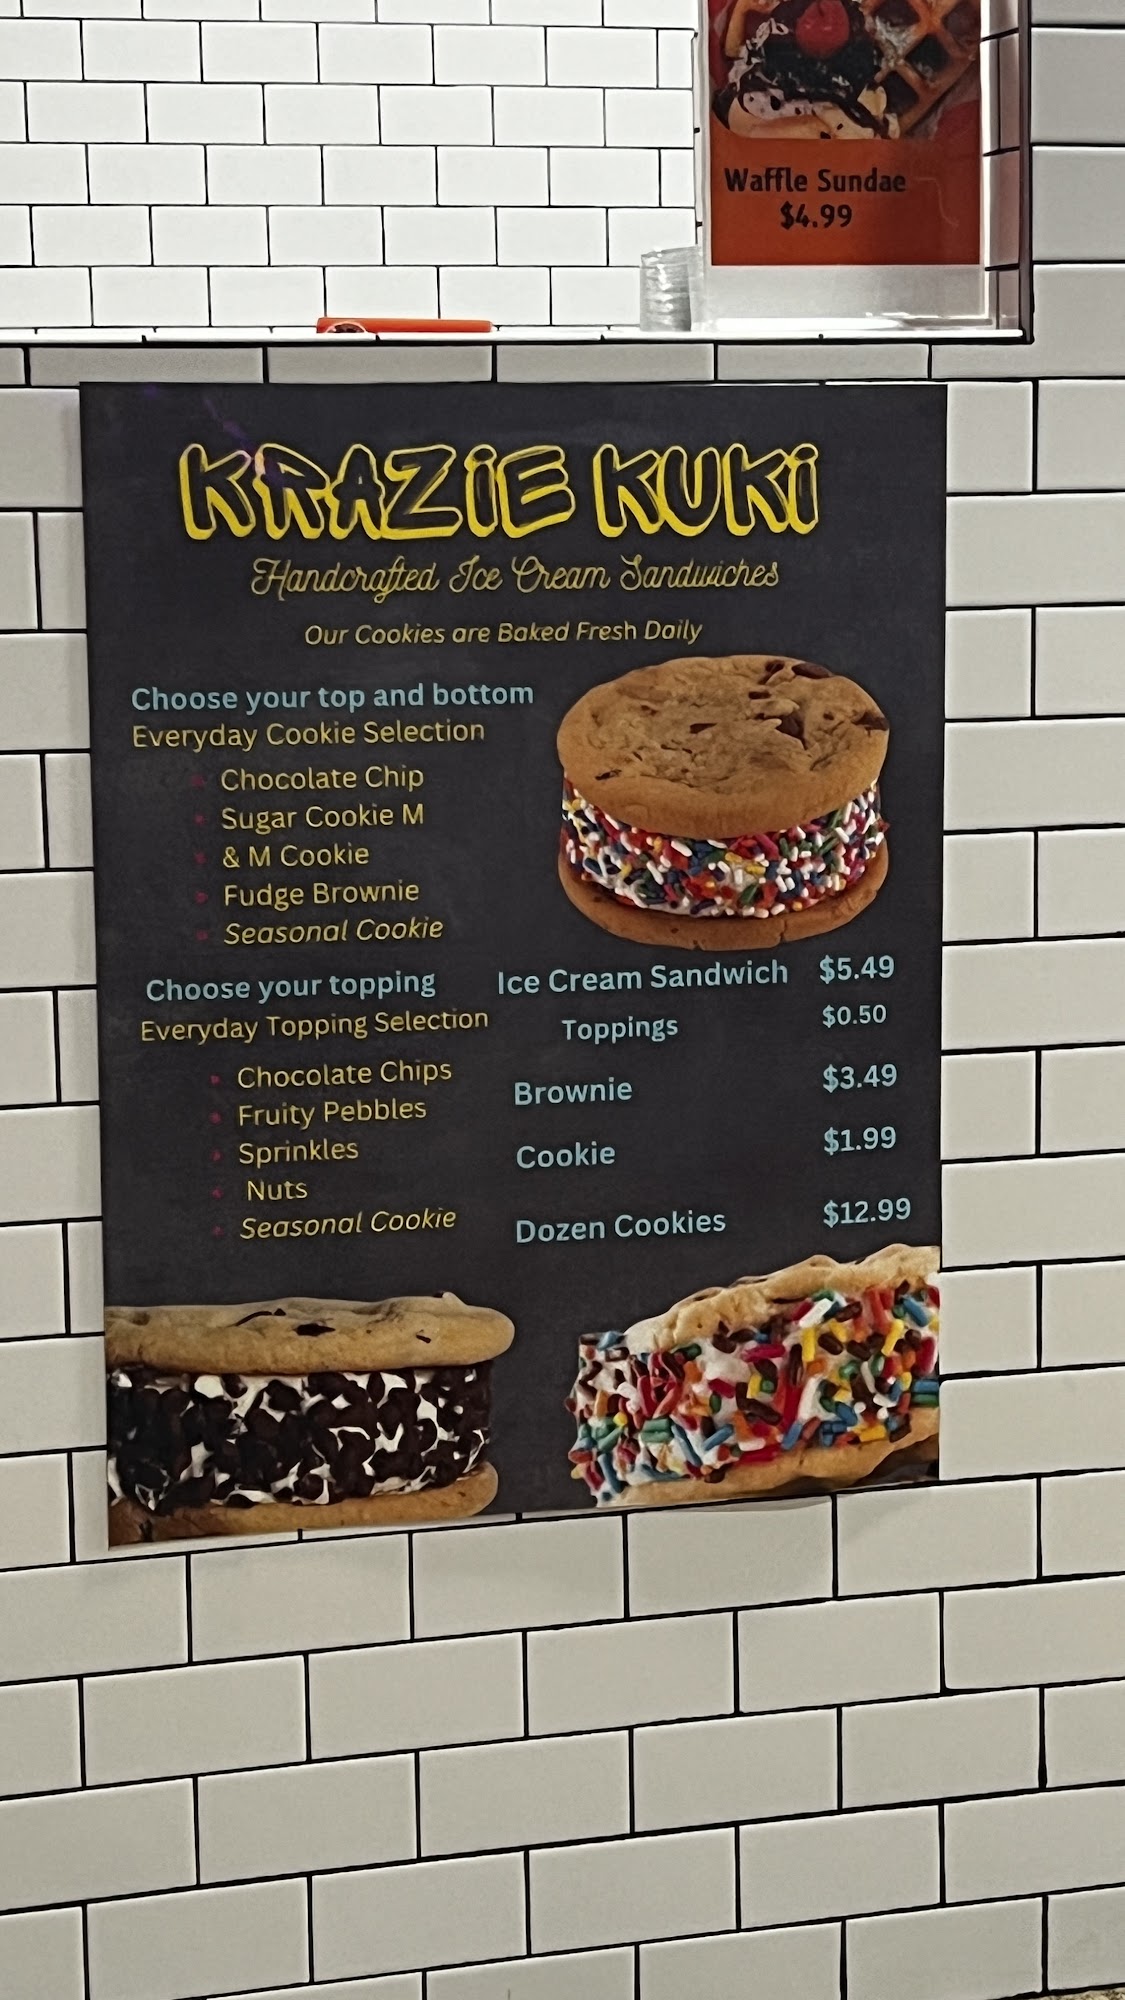 Waffle Sundae
$4.99
KRAZiE KUKi
Handcrafted Ice Cream Sandwiches
Our Cookies are Baked Fresh Daily
Choose your top and bottom
Everyday Cookie Selection
Chocolate Chip
Sugar Cookie M
& M Cookie
Fudge Brownie
Seasonal Cookie
Choose your topping
Everyday Topping Selection
Chocolate Chips
Fruity Pebbles
Sprinkles
Nuts
Seasonal Cookie
Ice Cream Sandwich $5.49
Toppings $0.50
Brownie $3.49
Cookie $1.99
Dozen Cookies $12.99